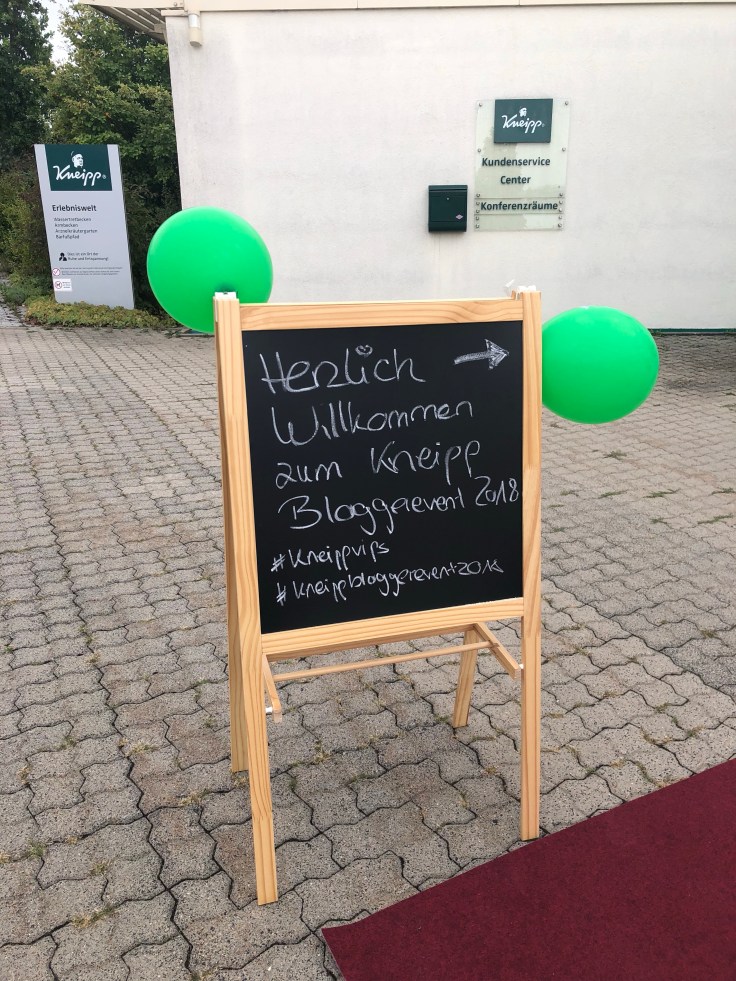 Kneipp®
Erlebniswelt
Wassertretbecken
Armbecken
Arzneikräutergarten
Barfußpfad
Kneipp®
Kundenservice
Center
Konferenzräume
Herzlich
Willkommen
zum Kneipp
Bloggerevent 2018
#Kneippvips
#kneippbloggerevent2018